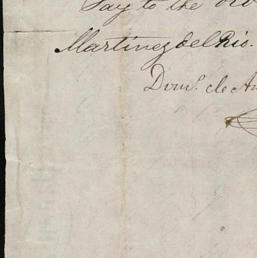 Pay to the
Martinez del Rio.
Dom.º de